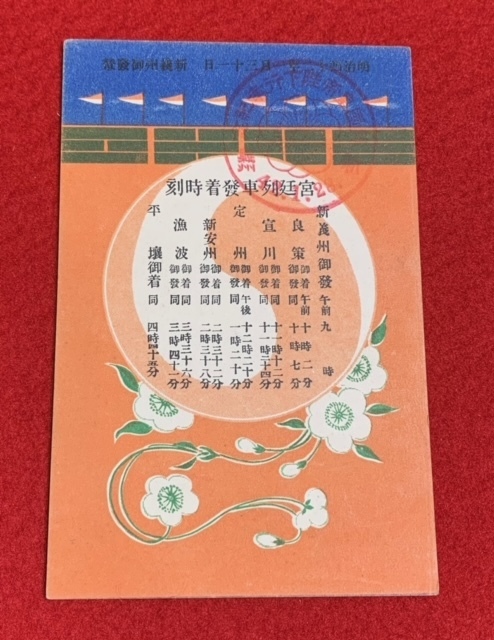 明治 月三十一日 新義州御發輦
宮廷列車發着時刻
新義州御發午前九時
良策御着午前十時二分
御發同十時七分
宣川御着同十一時十二分
御發同十一時三十四分
定州御着午後十二時二十分
御發同一時二十分
新安州御着同二時三十二分
御發同二時三十八分
漁波御着同三時三十六分
御發同三時四十一分
平壤御着同四時四十五分